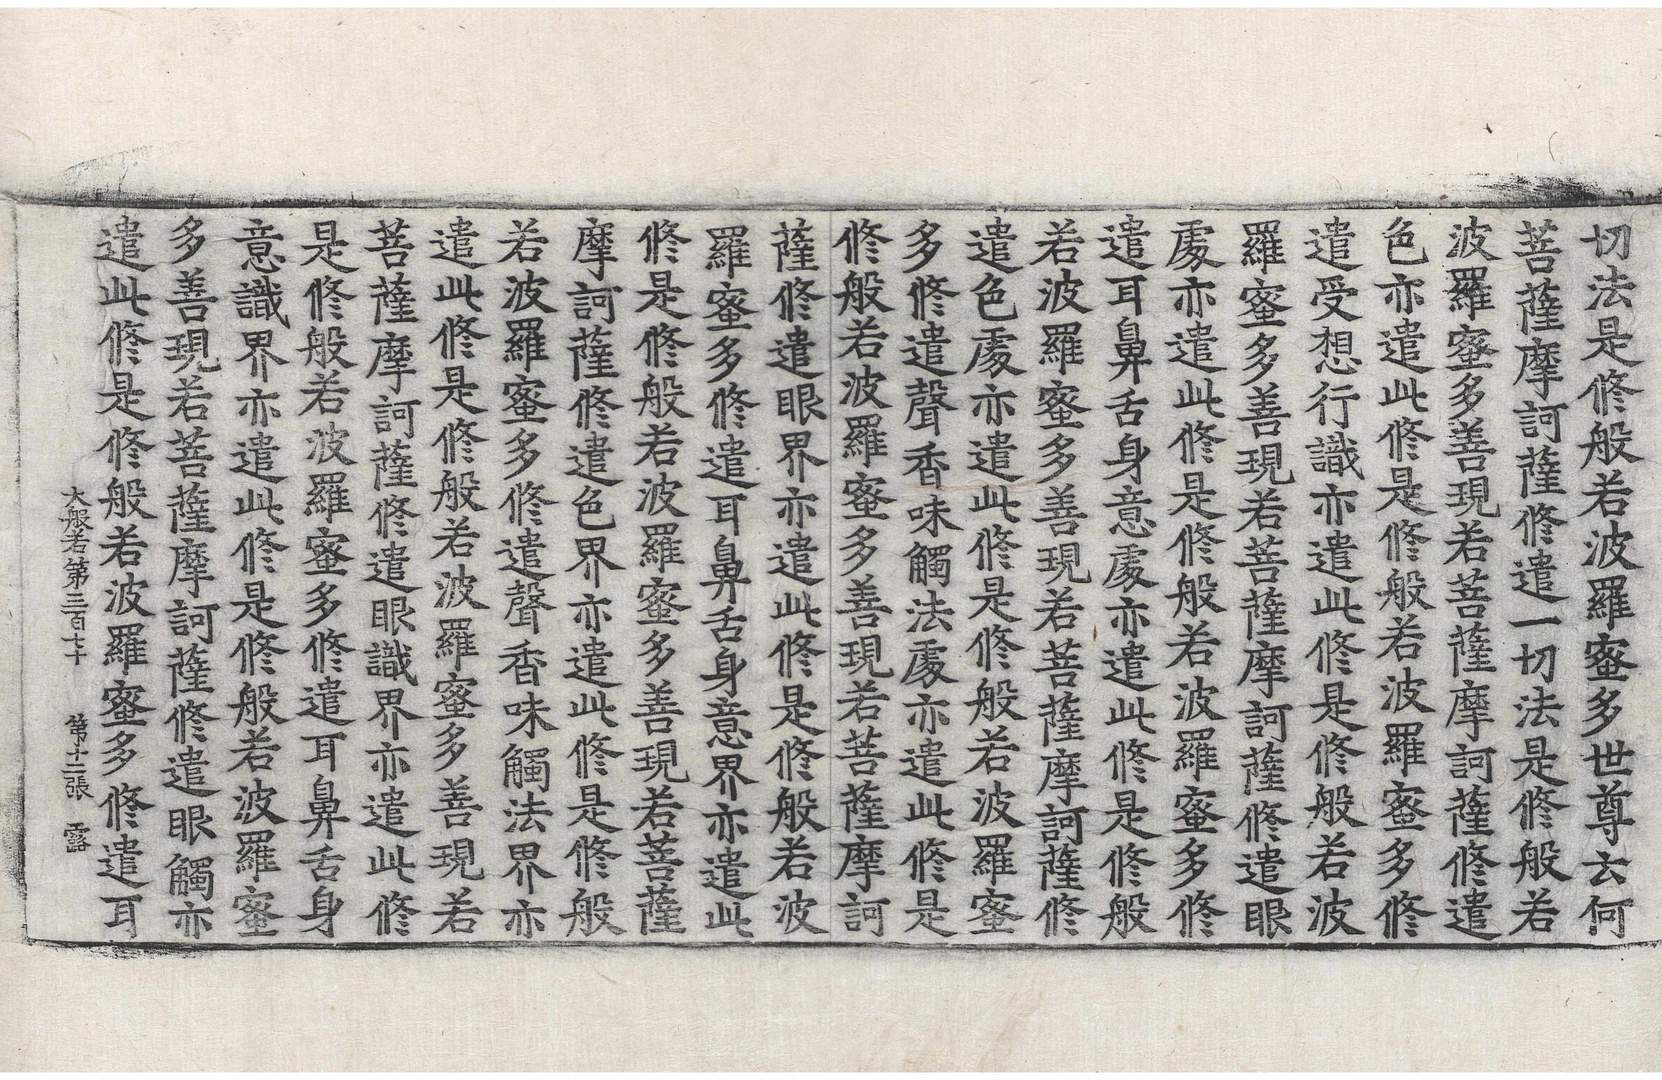 切法是修般若波羅蜜多世尊云何
菩薩摩訶薩修遣一切法是修般若
波羅蜜多善現若菩薩摩訶薩修遣
色亦遣此修是修般若波羅蜜多修
遣受想行識亦遣此修是修般若波
羅蜜多善現若菩薩摩訶薩修遣眼
處亦遣此修是修般若波羅蜜多修
遣耳鼻舌身意處亦遣此修是修般
若波羅蜜多善現若菩薩摩訶薩修
遣色處亦遣此修是修般若波羅蜜
多修遣聲香味觸法處亦遣此修是
修般若波羅蜜多善現若菩薩摩訶
薩修遣眼界亦遣此修是修般若波
羅蜜多修遣耳鼻舌身意界亦遣此
修是修般若波羅蜜多善現若菩薩
摩訶薩修遣色界亦遣此修是修般
若波羅蜜多修遣聲香味觸法界亦
遣此修是修般若波羅蜜多善現若
菩薩摩訶薩修遣眼識界亦遣此修
是修般若波羅蜜多修遣耳鼻舌身
意識界亦遣此修是修般若波羅蜜
多善現若菩薩摩訶薩修遣眼觸亦
遣此修是修般若波羅蜜多修遣耳
大般若第三百七十 第十二張 露